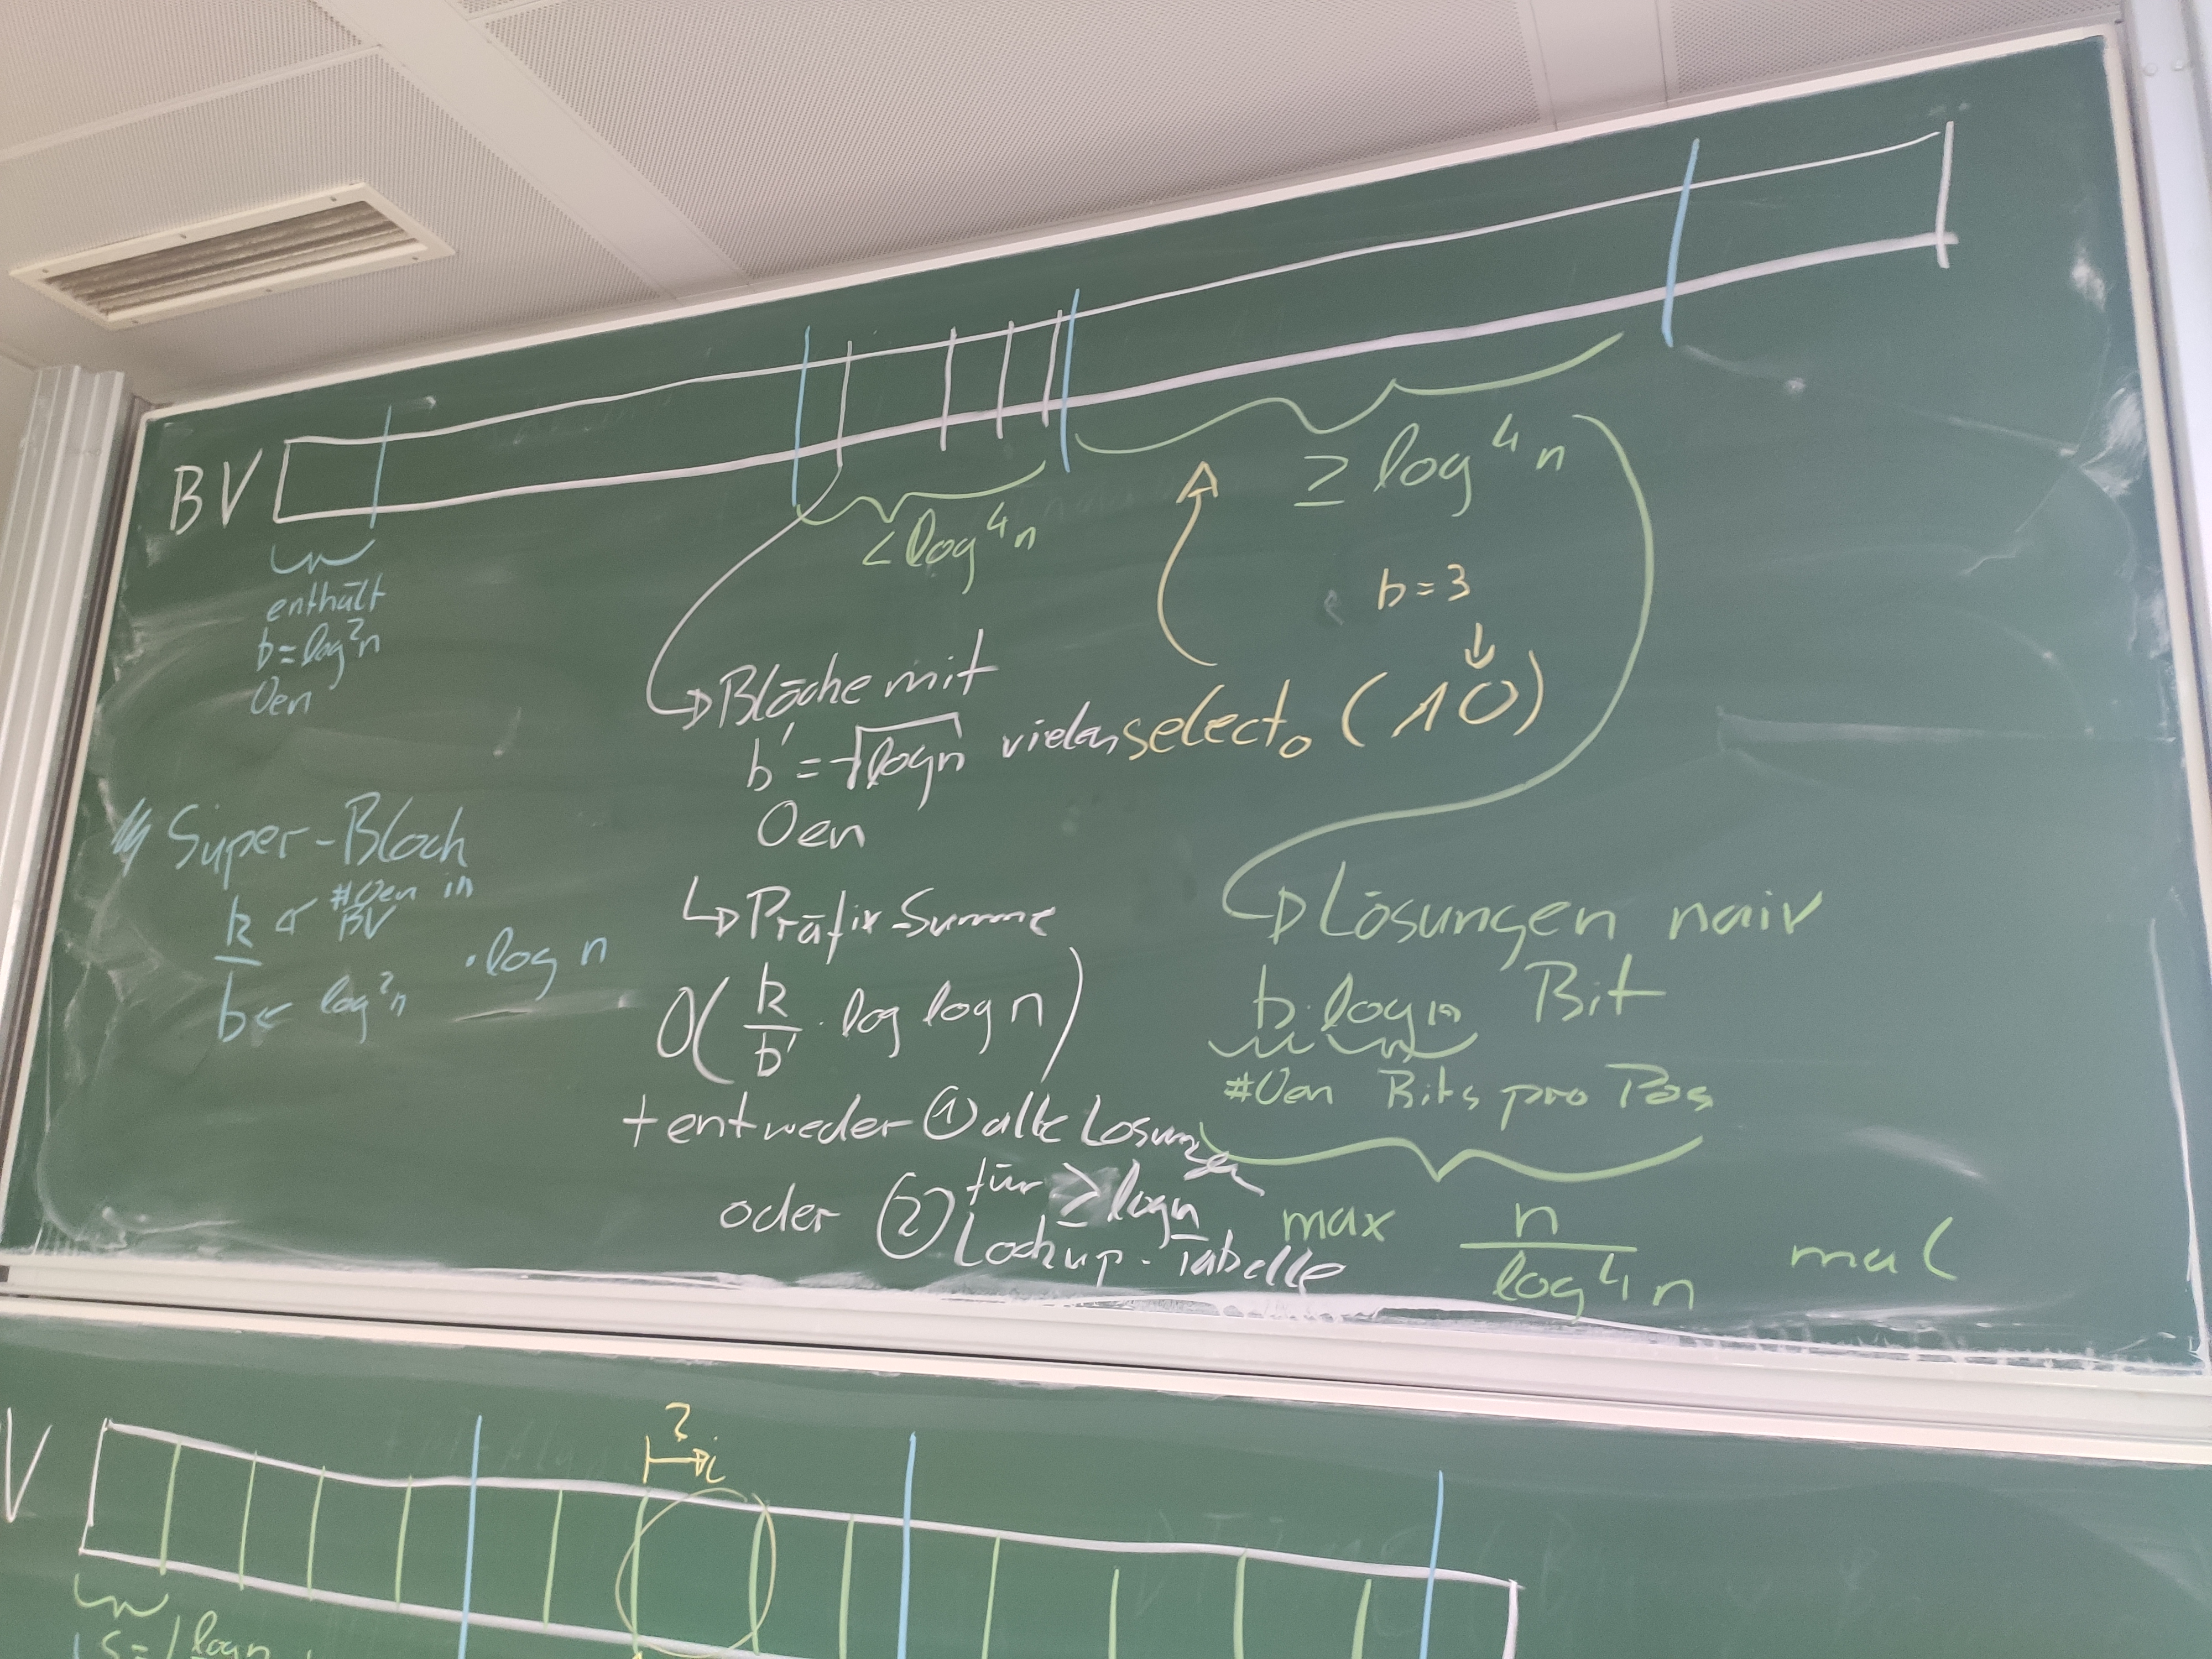 BV
enthält
b = log²n
0en
< log⁴n
≥ log⁴n
b = 3
select₀ (10)
↳ Blöcke mit
b' = √log n vielen
0en
Super-Block
k ← #0en in BV
b ← log²n
· log n
↳ Präfix-Summe
O(k/b' · log log n)
+ entweder ① alle Lösungen
für ≥ log n
oder ② Lookup-Tabelle
↳ Lösungen naiv
b · log n Bit
#0en Bits pro Pos
max n/log⁴n mal
V
? i
s = log n